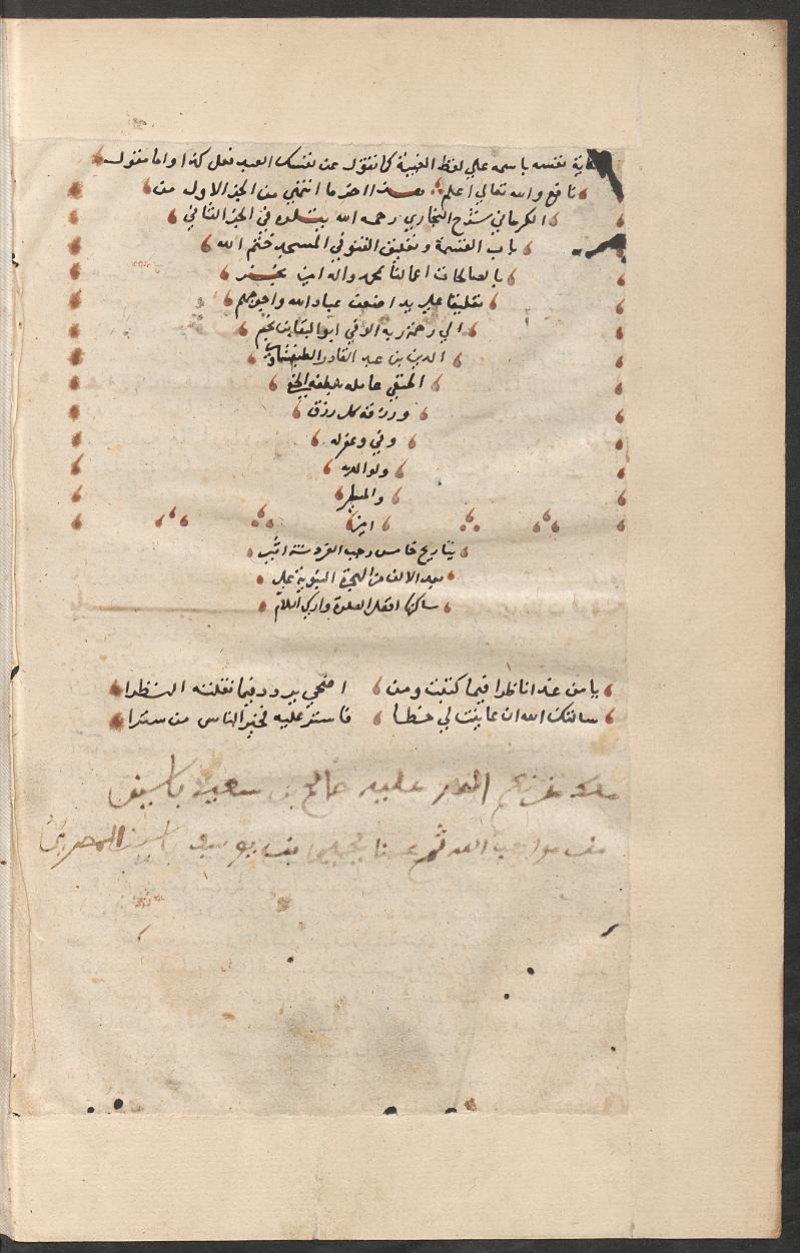 نفسه باسمه على لفظ الغيبة كما تقول عن نفسك العبد فعل كذا واما مقول
نافع والله تعالى اعلم وهذا اخر ما انتهى من الجزء الاول من
الكرماني شرح البخاري رحمه الله يتلوه في الجزء الثاني
باب القسمة وتعليق القنو في المسجد ختم الله
بالصالحات اعمالنا بمحمد واله امين بخير
تعليقا على يد اضعف عباد الله واحوجهم
الى رحمة ربه الوفي ابو البقا بن نجم
الدين بن عبد القادر
الحنفي عامله بلطفه الخفي
ورزقه كل رزق
وفي وغفر له
ولوالديه
والمسلمين
امين
بتاريخ خامس رجب الفرد سنة
بعد الالف من الهجرة النبوية على
ساكنها افضل الصلوة وازكى السلام
يا من غدا ناظرا فيما كتبت ومن اضحى يردد فيما نقلته النظرا
سالتك الله ان عاينت لي خطا فاستر عليه فخير الناس من سترا
عليه صالح بن سعيد
من مواهب الله ثم بن يوسف